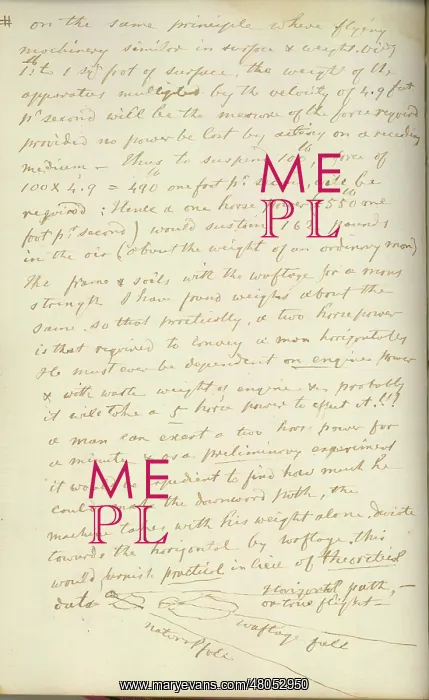 # on the same principle where flying
machinery similar in surface & weight, viz
1 lb to 1 sqr foot of surface, the weight of the
apparatus multiplied by the velocity of 4.9 feet
pr second will be the measure of the force required
provided no power be lost by acting on a receding
medium – Thus to suspend 100 lb, force of
100 x 4.9 = 490 one foot pr will be
required : Hence a one horse power (550 one
foot pr second) would sustain pounds
in the air (about the weight of an ordinary man)
The frame & sails with the waftage for a mans
strength I have found weighs about the
same, so that practically, a two horse power
is that required to convey a man horizontally
He must ever be dependent on engine power
& with waste weight of engine &c probably
it will take a 5 horse power to effect it!!!
a man can exert a two horse power for
a minute & as a preliminary experiment
it would be expedient to find how much he
could the downward path, the
machine takes with his weight alone, deviate
towards the horizontal by waftage, this
would furnish practical in lieu of theoretical
data
Horizontal path, –
or true flight –
waftage fall
natural fall
ME
PL
ME
PL
www.maryevans.com/48052950